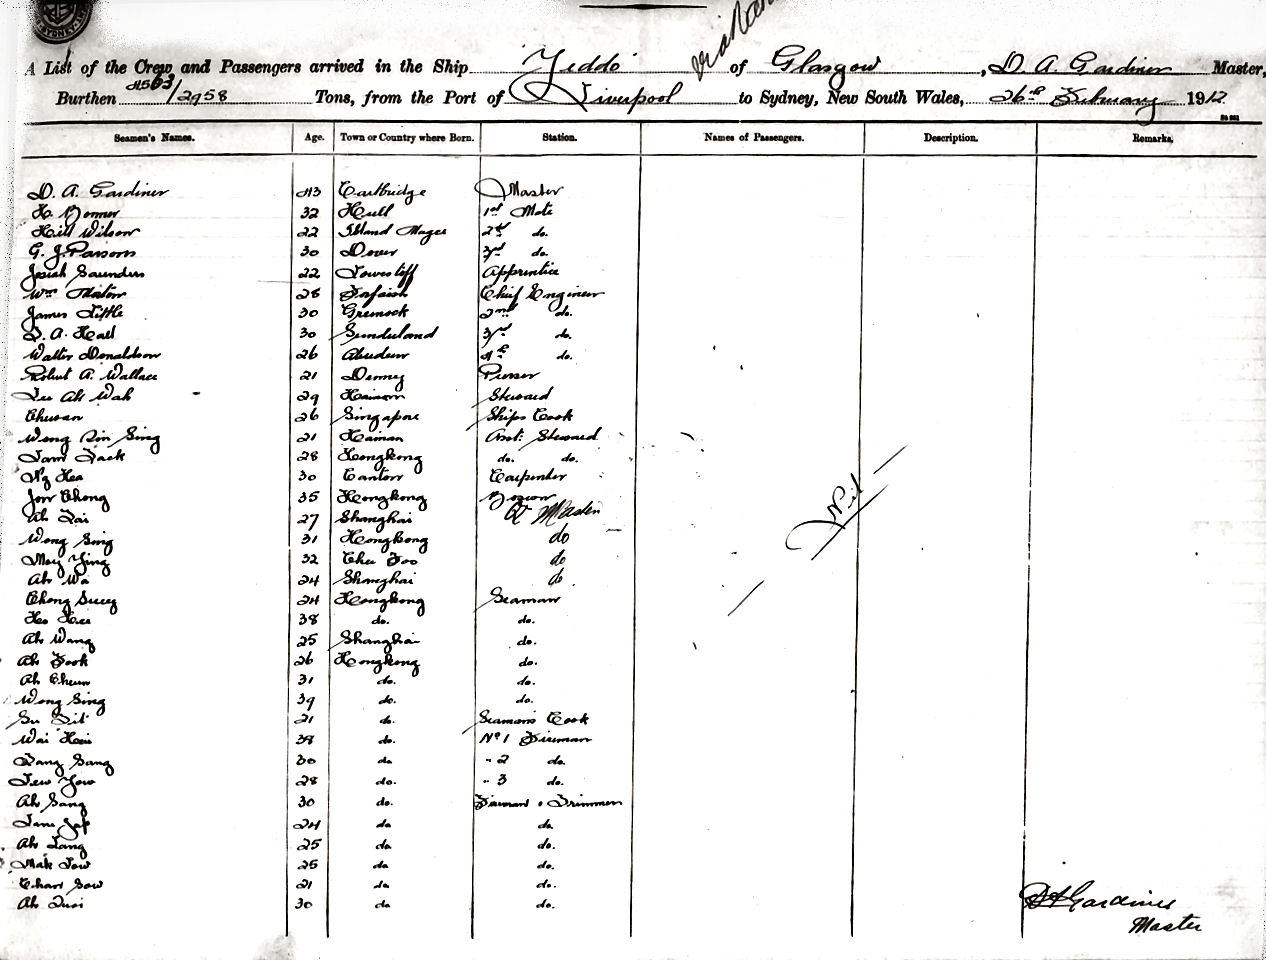 SYDNEY
via
A List of the Crew and Passengers arrived in the Ship Yeddo of Glasgow, D. A. Gardiner Master,
Burthen 4563/2958 Tons, from the Port of Liverpool to Sydney, New South Wales, 26th February 1912
Seamen's Names. Age. Town or Country where Born. Station. Names of Passengers. Description. Remarks.
D. A. Gardiner 43 Master
H. 32 Hull 1st Mate
Hill Wilson 22 Island Magee 2nd do.
G. J. Parsons 30 Dover 3rd do.
Josiah Saunders 22 Lowestoff Apprentice
Wm 28 Chief Engineer
James Little 30 Greenock 2nd do.
30 Sunderland 3rd do.
Walter Donaldson 26 Aberdeen 4th do.
Robert A. Wallace 21 Denny Purser
Lee Ah Wah 29 Steward
Churan 26 Singapore Ships Cook
Wong Sin Sing 21 Hainan Asst: Steward
Tam Jack 28 Hongkong do. do.
Ng Hea 30 Canton Carpenter
Jow Chong 35 Hongkong
Ah Tai 27 Shanghai Qr Master
Wong Sing 31 Hongkong do
Moy Ying 32 Chee Foo do
Ah Wa 24 Shanghai do
Chong Suey 24 Hongkong Seaman
38 do. do.
Ah Wang 25 Shanghai do.
Ah Fook 26 Hongkong do.
Ah Cheun 31 do. do.
Wong Sing 39 do. do.
21 do. Seamens Cook
Wai 38 do. No 1 Fireman
Fang Sang 30 do " 2 do.
Lew Yow 28 do. " 3 do.
Ah Sang 30 do. Trimmer
24 do do.
Ah Lang 25 do do.
Mak Low 25 do do.
Chan Sow 21 do do.
Ah 30 do do.
Nil
D A Gardiner
Master